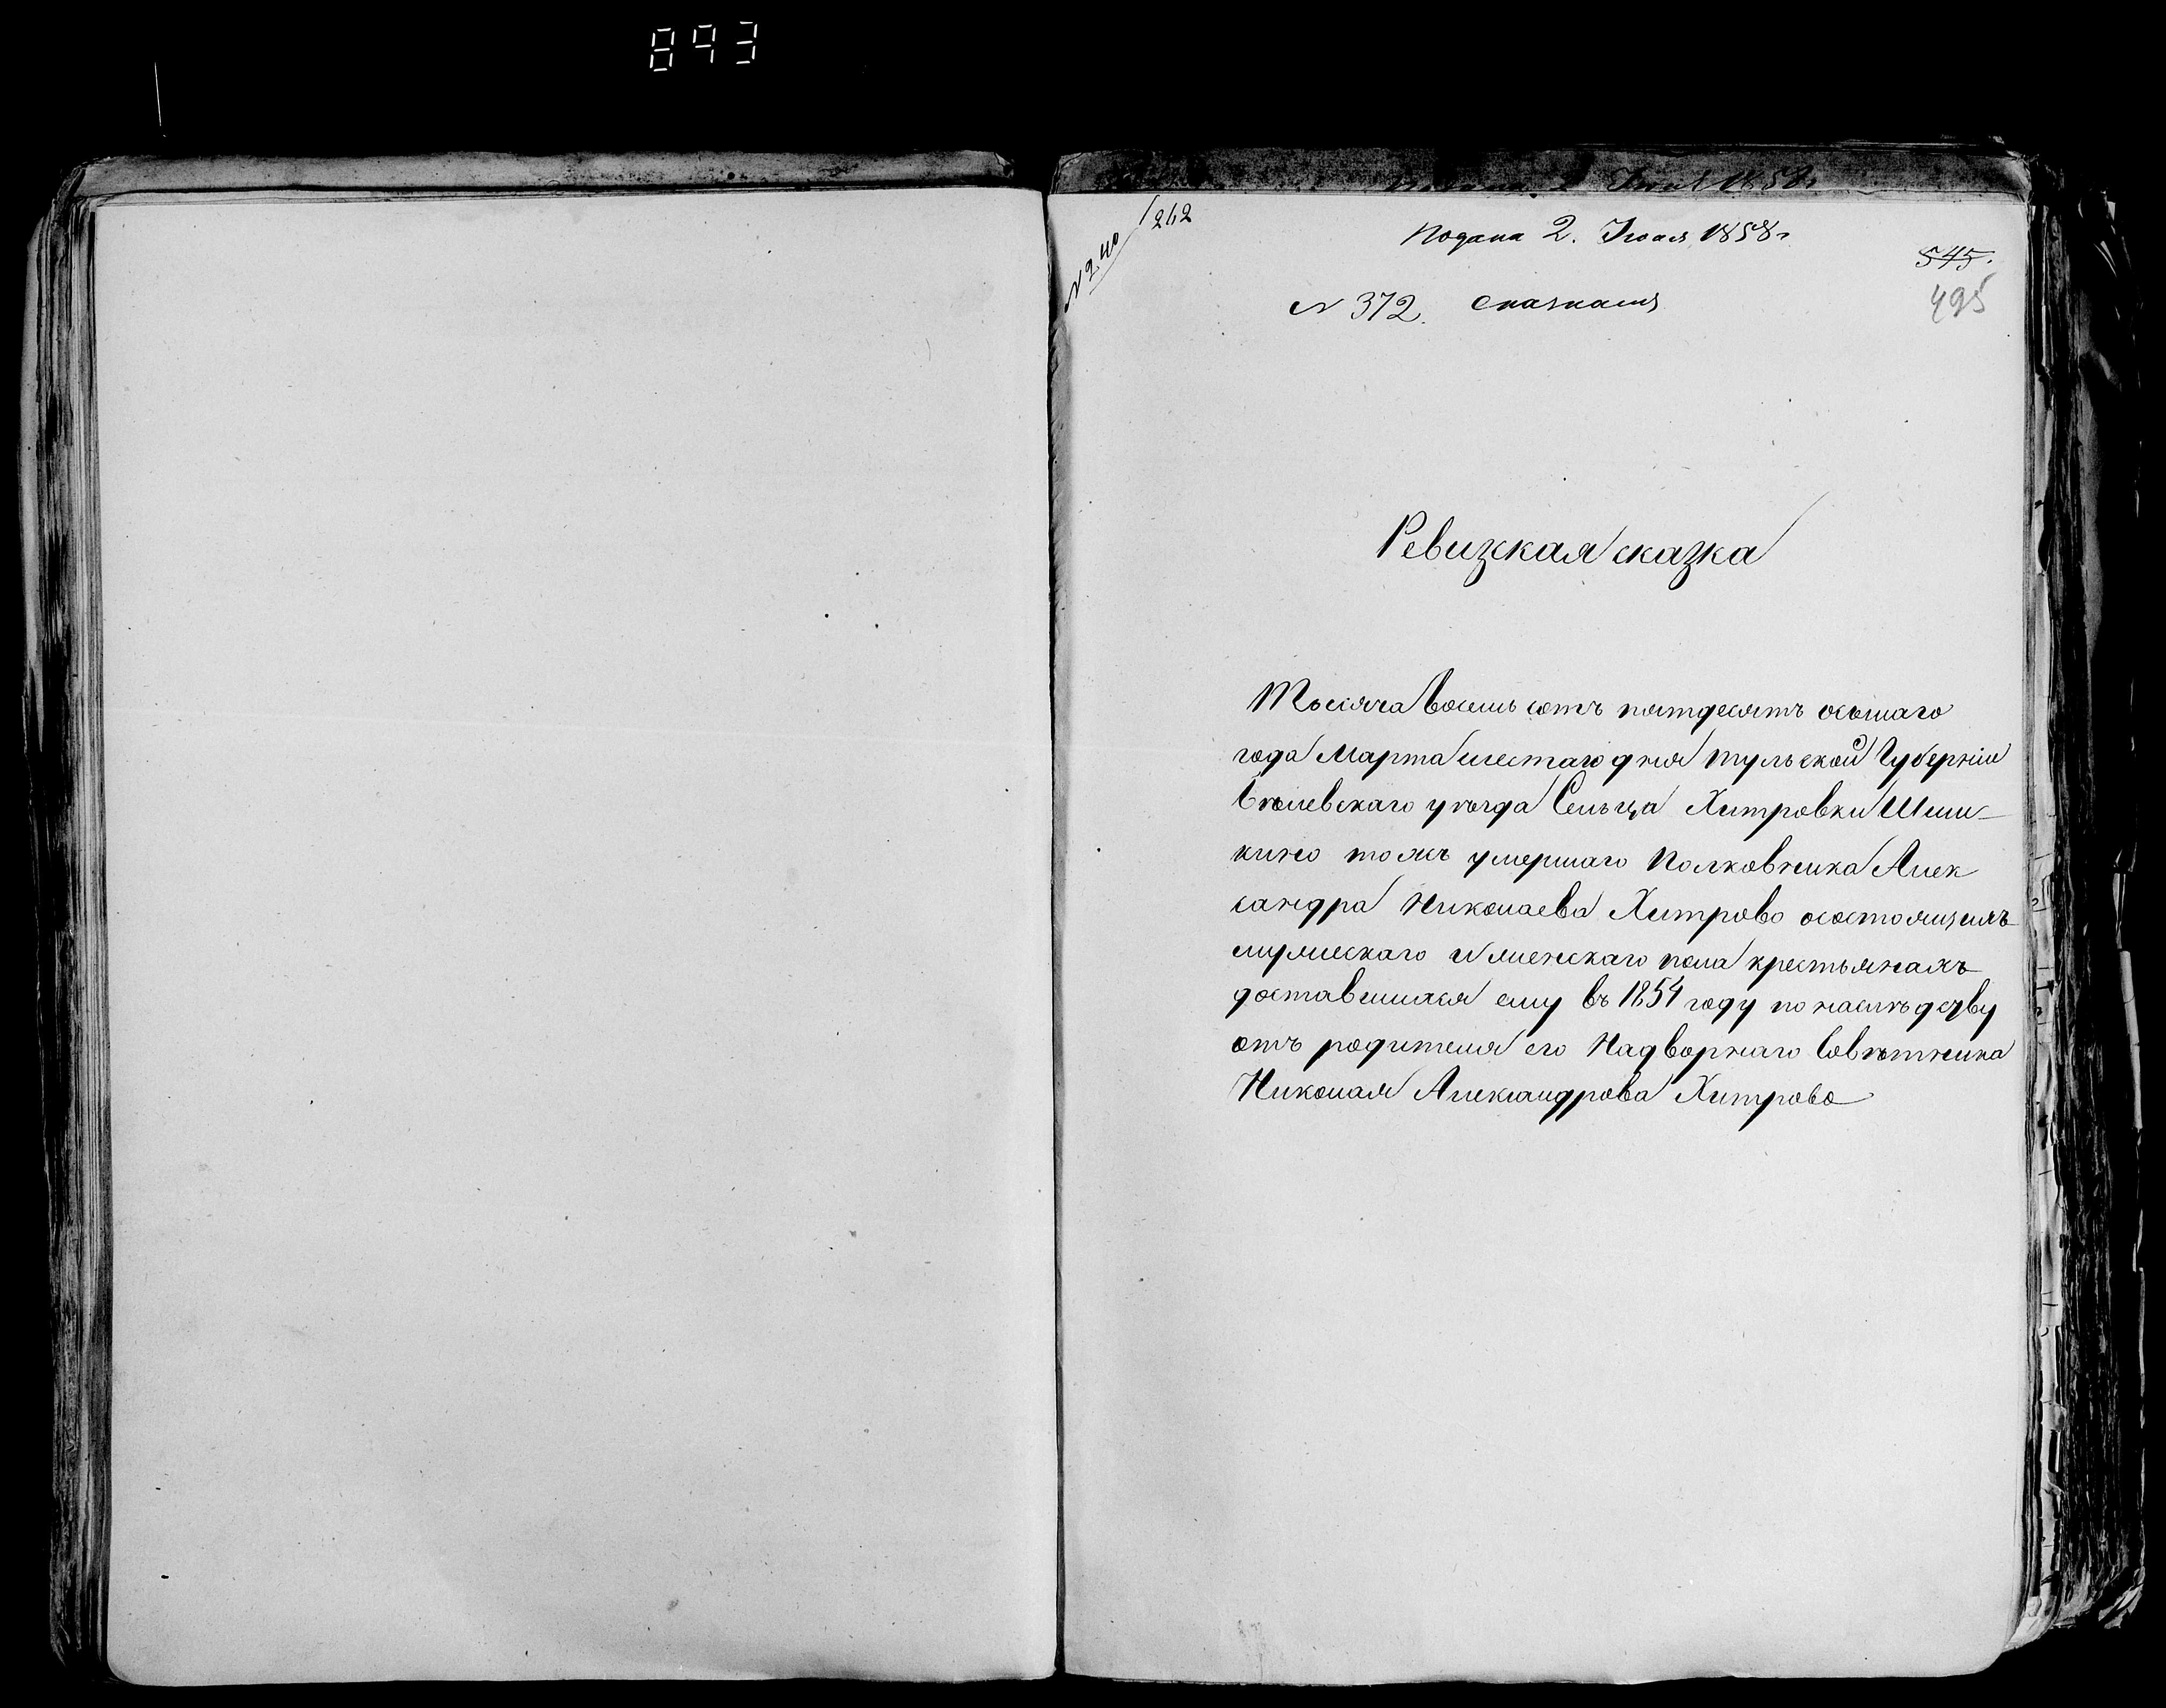 893
N 240
1262
Подана 2. Июля 1858 г
545.
N 372.
495
Ревизская сказка
Тысяча восемь сотъ пятдесятъ осьмаго
года Марта шестаго дня Тульской Губерніи
Бѣлевскаго уѣзда Сельца Хитровки Шиш-
кино тожъ умершаго Полковника Алек
сандра Николаева Хитрово осостоящихъ
мужескаго и женскаго пола крестьянахъ
доставшихся ему въ 1854 году по наслѣдству
отъ родителя его Надворнаго Совѣтника
Николая Александрова Хитрово